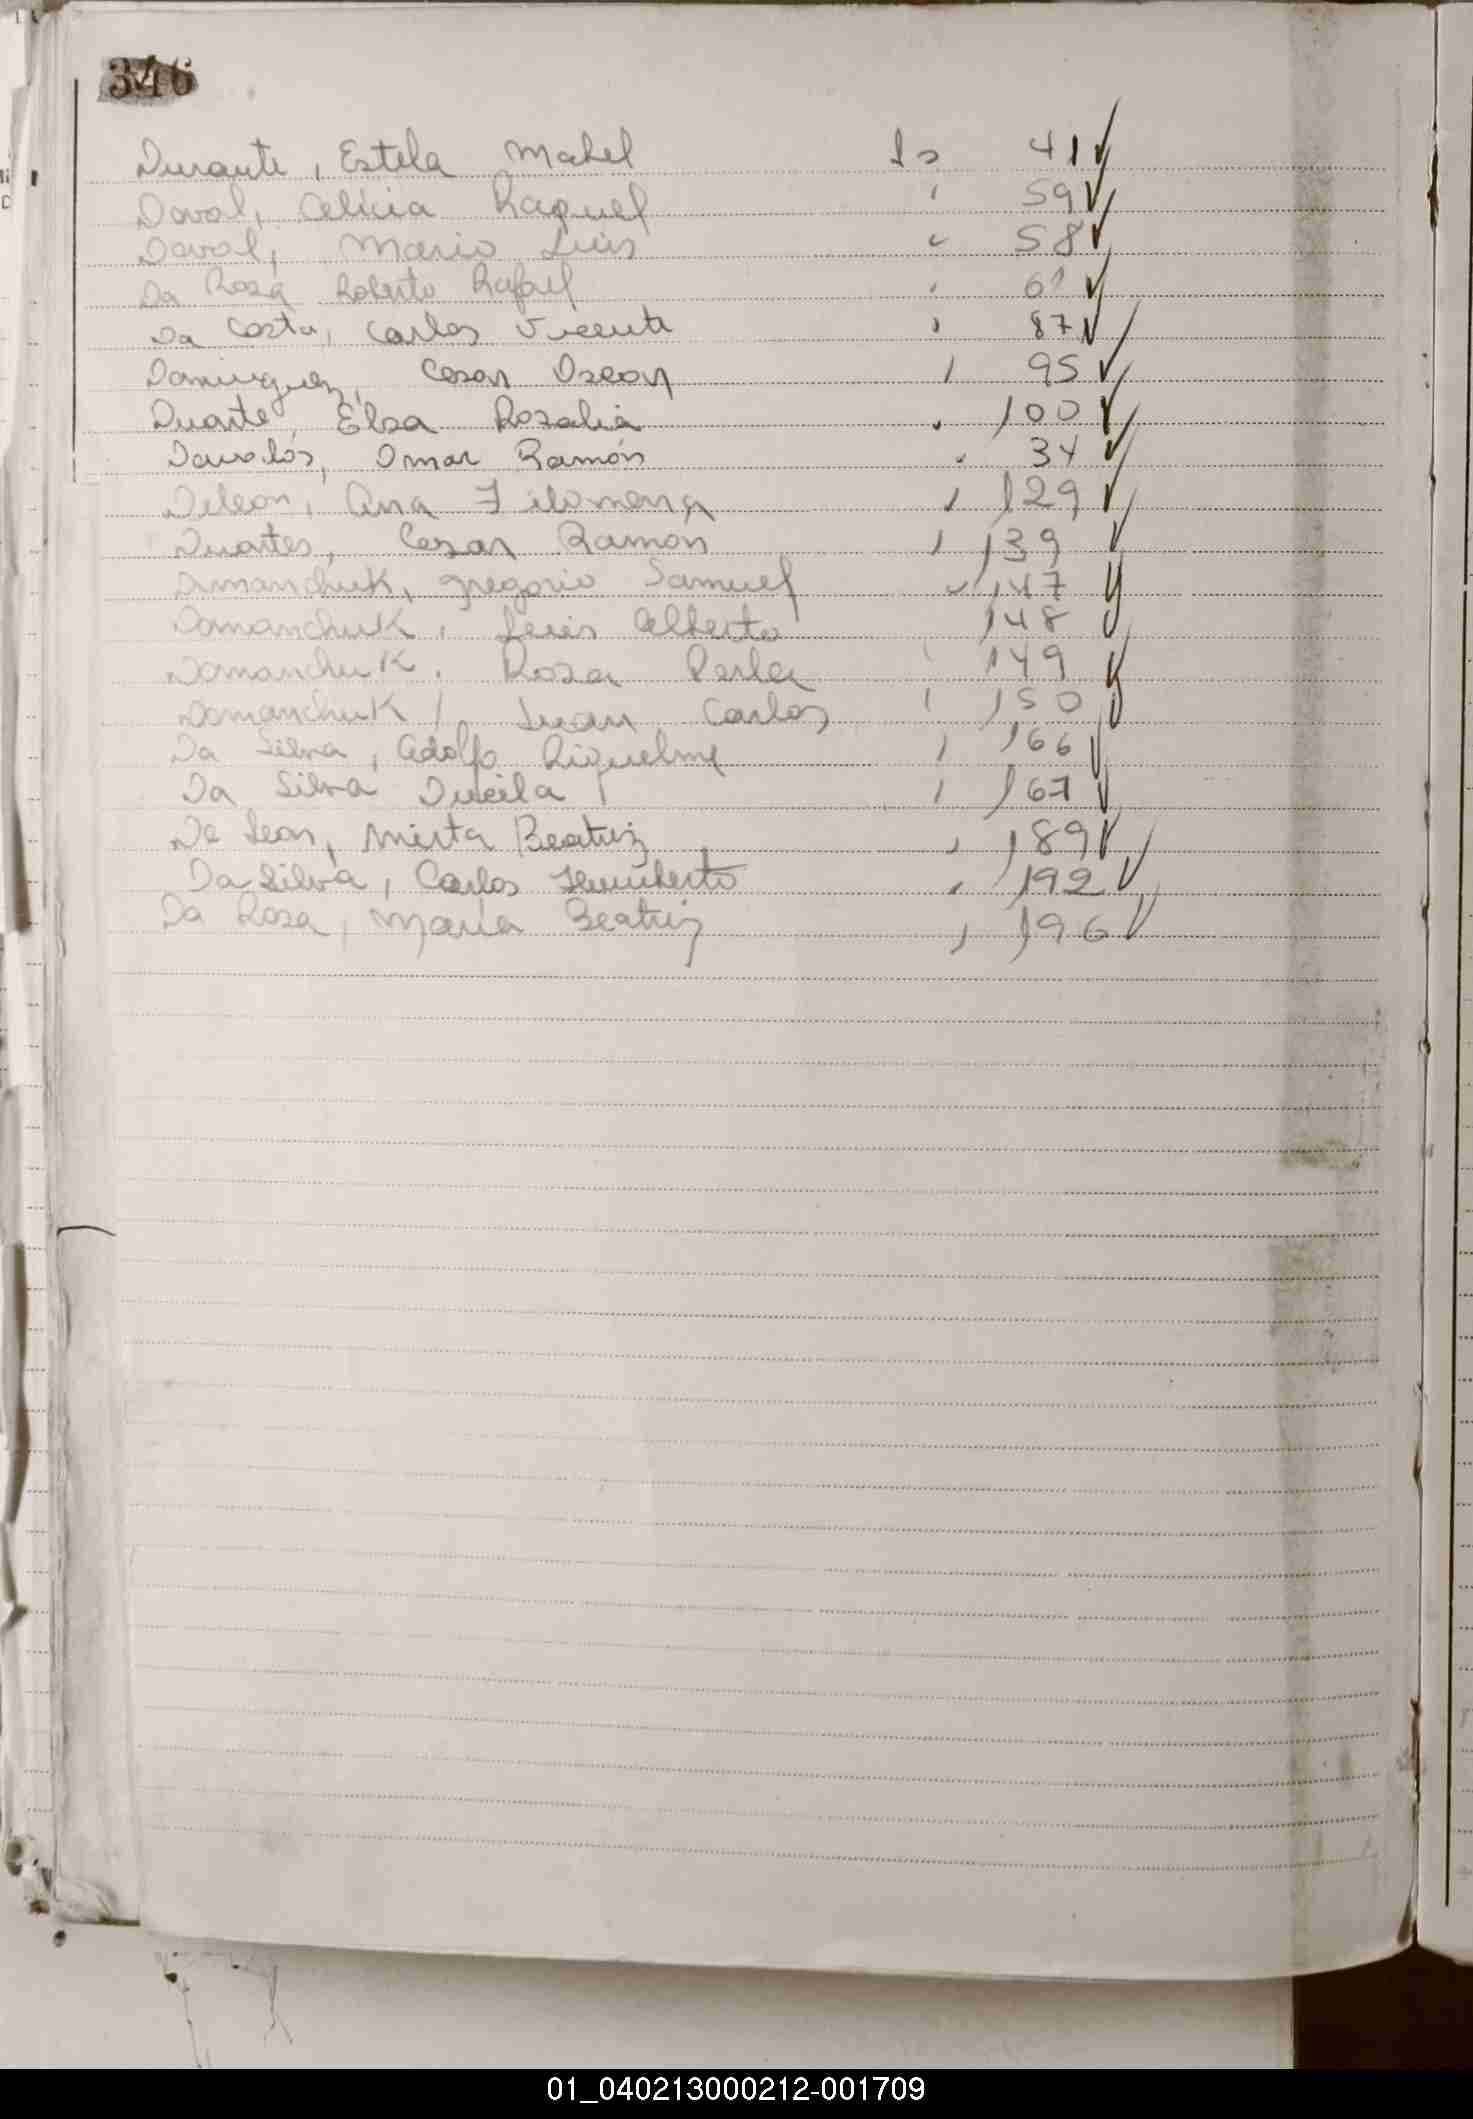 346
Durante, Estela Mabel Fo 41 ✓
Doval, Alicia Raquel " 59 ✓
Doval, Mario Luis " 58 ✓
Da Rosa Roberto Rafael " 61 ✓
Da Costa, Carlos Vicente " 87 ✓
Dominguez, Cesar Oscar " 95 ✓
Duarte, Elsa Rosalia " 100 ✓
Davalos, Omar Ramón " 34 ✓
Deleon, Ana Filomena " 129 ✓
Duartes, Cesar Ramon " 139 ✓
Domanchuk, Gregorio Samuel " 147 ✓
Domanchuk, Luis Alberto 148 ✓
Domanchuk, Rosa Perla " 149 ✓
Domanchuk, Juan Carlos " 150 ✓
Da Silva, Adolfo Riquelme " 166 ✓
Da Silva " 167 ✓
De Leon, Mirta Beatriz " 189 ✓
Da Silva, Carlos Humberto " 192 ✓
Da Rosa, María Beatriz " 196 ✓
01_040213000212-001709